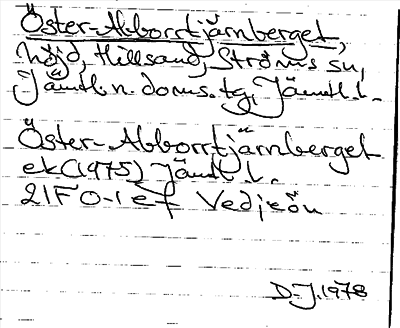 Öster-Abborrtjärnberget,
höjd, Hillsand, Ströms sn,
Jämtl. n. doms. tg, Jämtl. l.
Öster-Abborrtjärnberget
ek (1975) Jämtl l.
21F 0-1 ef Vedjeön
D-J. 1978